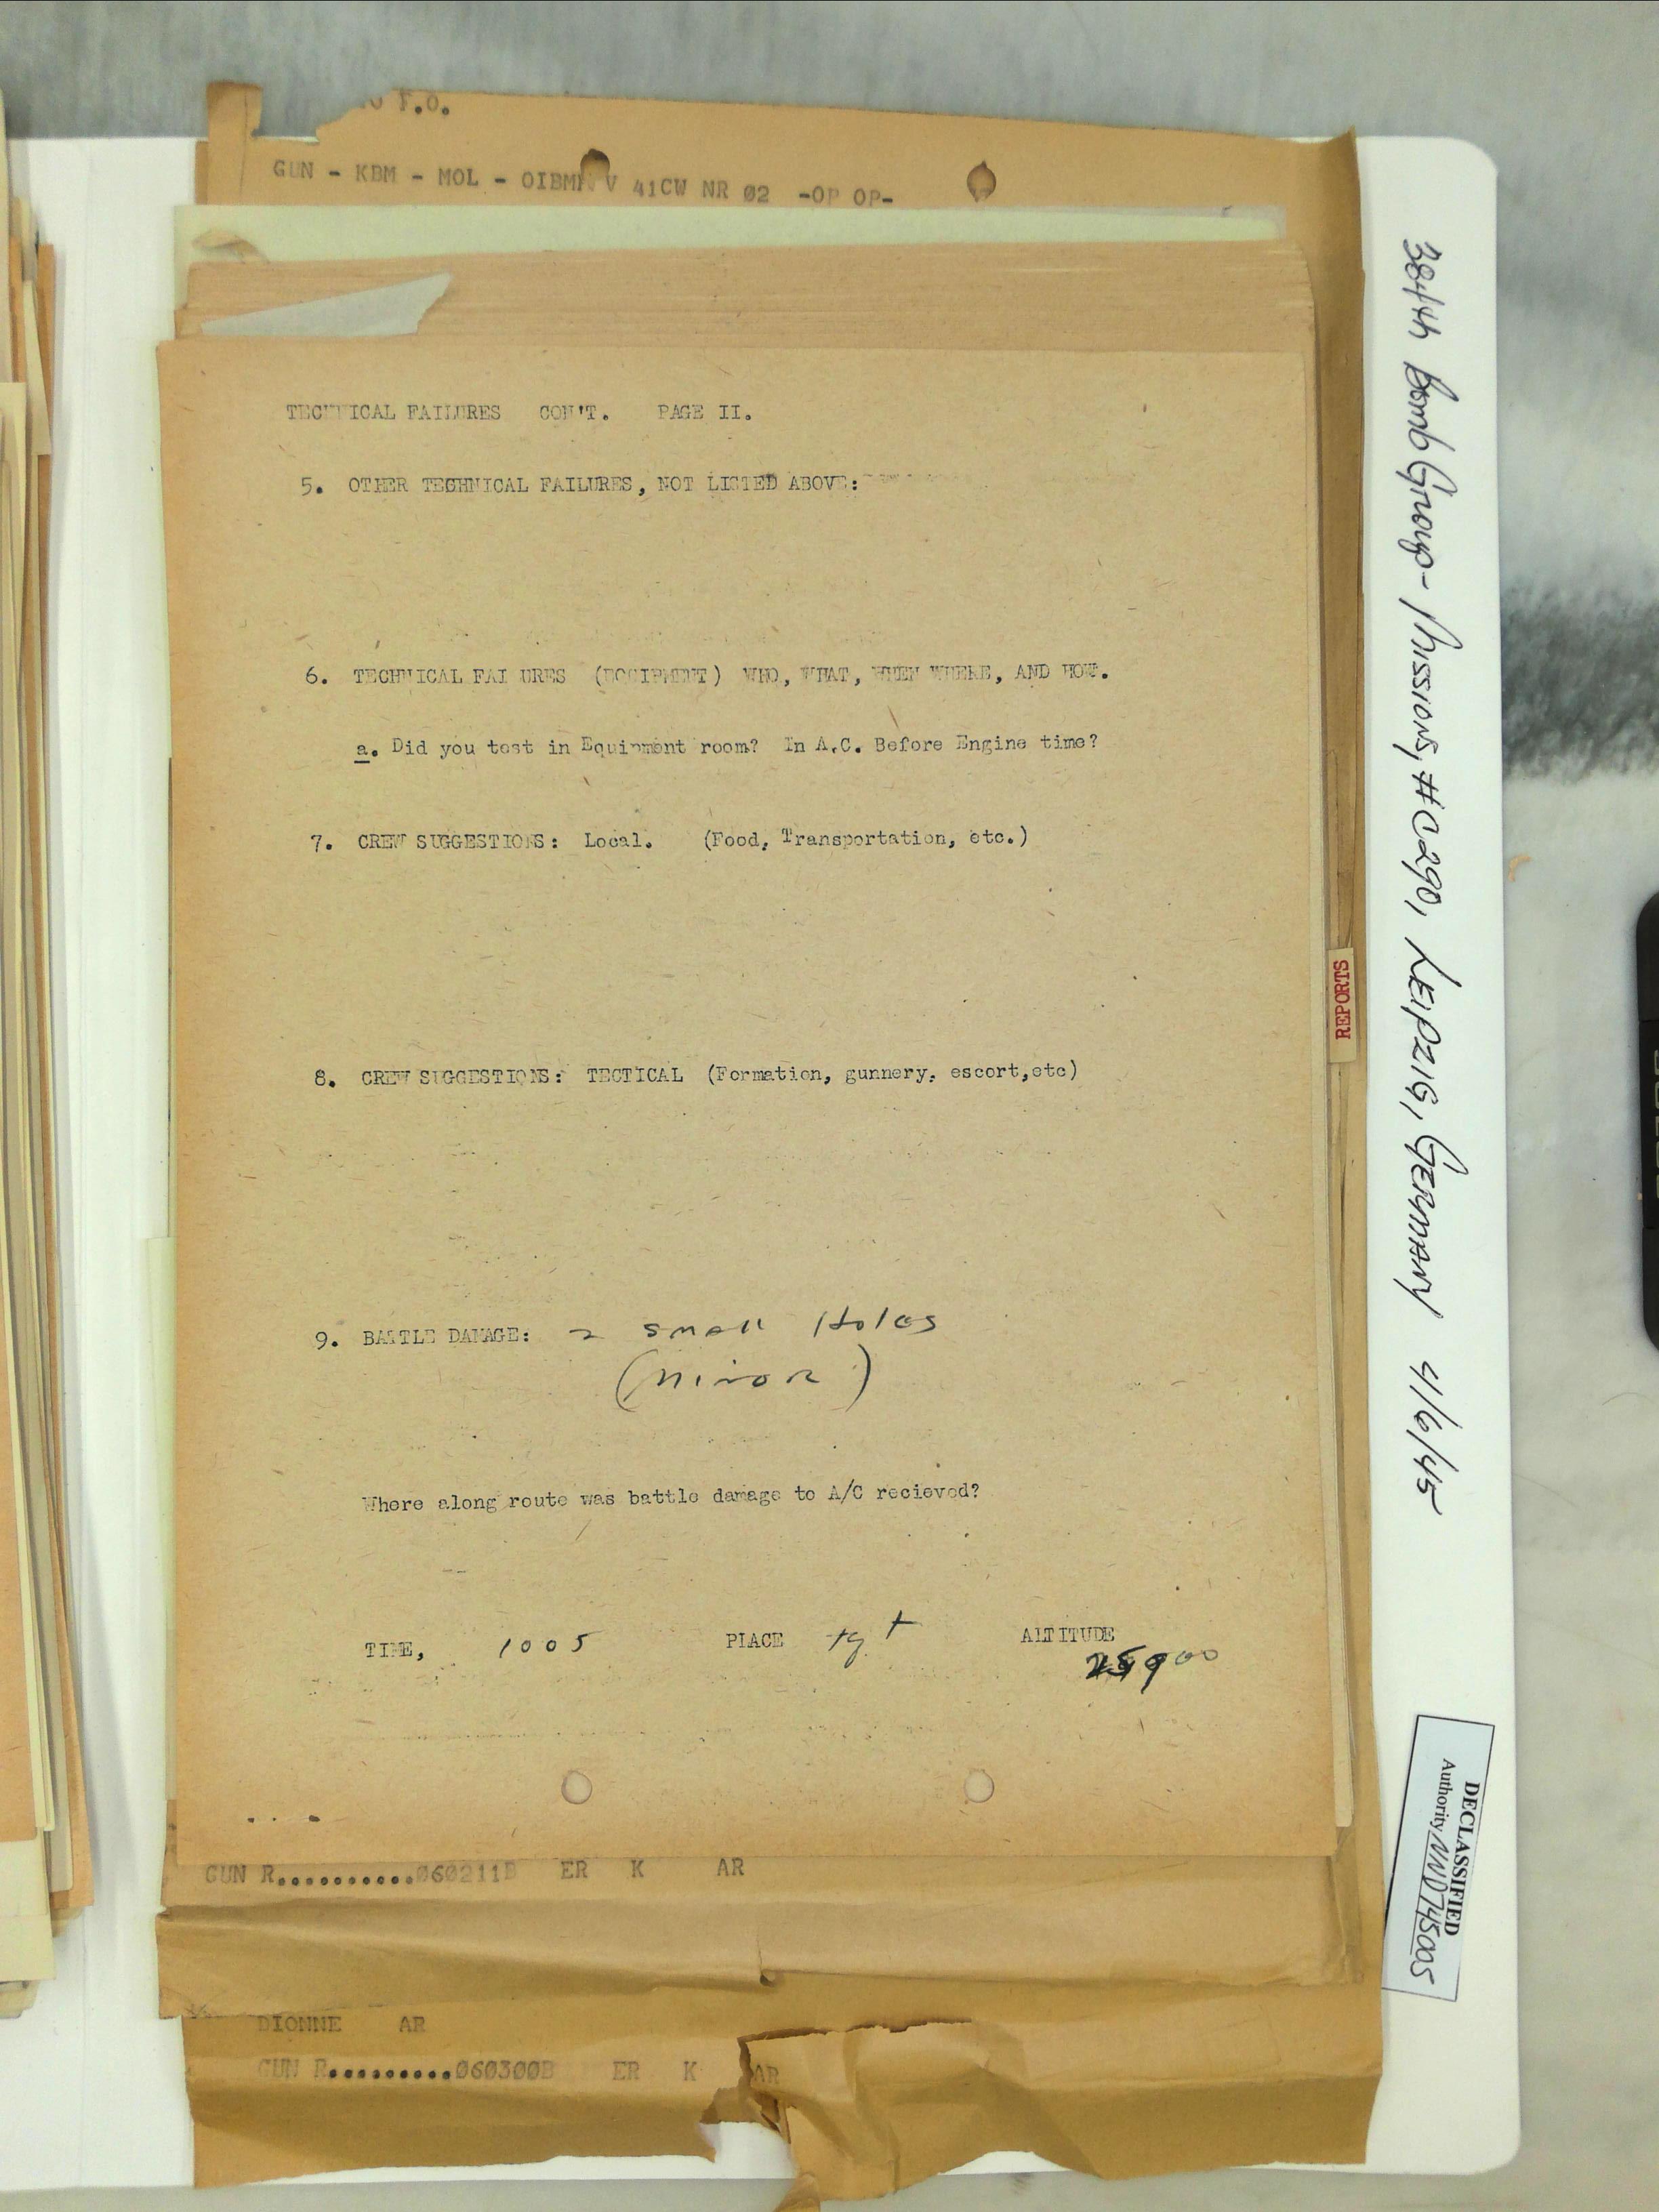 F.O.
GUN - KBM - MOL - OIBMN V 41CW NR 02 -OP OP-
TECHNICAL FAILURES CON'T. PAGE II.
5. OTHER TECHNICAL FAILURES, NOT LISTED ABOVE:
6. TECHNICAL FAI URES (EQUIPMENT) WHO, WHAT, WHEN WHERE, AND HOW.
a. Did you test in Equipment room? In A.C. Before Engine time?
7. CREW SUGGESTIONS: Local. (Food, Transportation, etc.)
8. CREW SUGGESTIONS: TECTICAL (Formation, gunnery, escort,etc)
9. BATTLE DAMAGE: 2 small Holes
(minor)
Where along route was battle damage to A/C recieved?
TIME, 1005 PLACE tgt ALTITUDE
GUN R..........060211B ER K AR
DIONNE AR
GUN R..........060300B ER K AR
REPORTS
384th Bomb Group - Missions, #C290, LEIPZIG, GERMANY 4/6/45
DECLASSIFIED
Authority NND745005